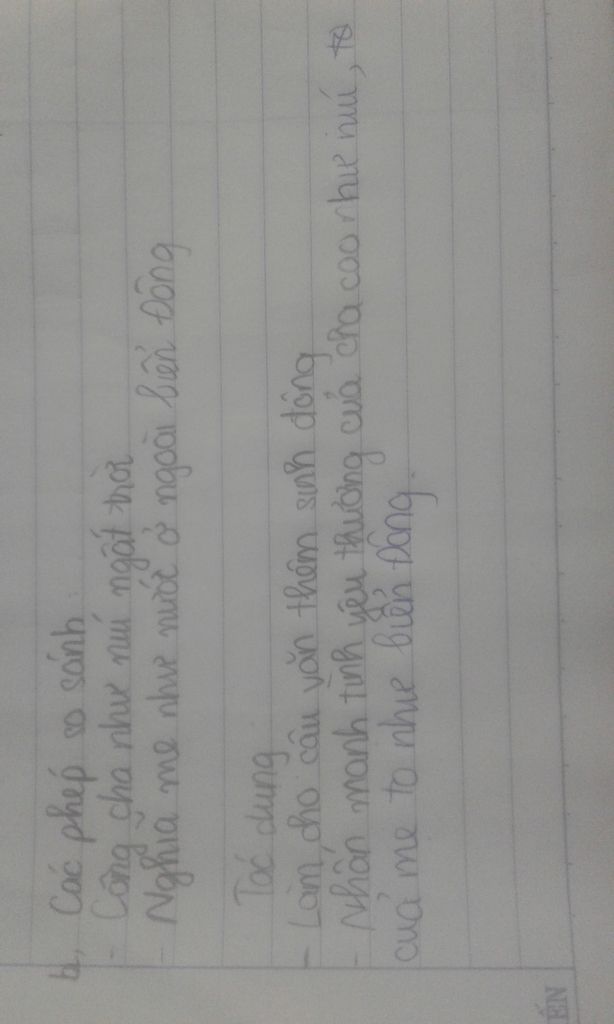 b, Các phép so sánh:
- Công cha như núi ngất trời
- Nghĩa mẹ như nước ở ngoài biển Đông
Tác dụng
- Làm cho câu văn thêm sinh động
- Nhấn mạnh tình yêu thương của cha cao như núi,
của mẹ to như biển Đông.
ẾN